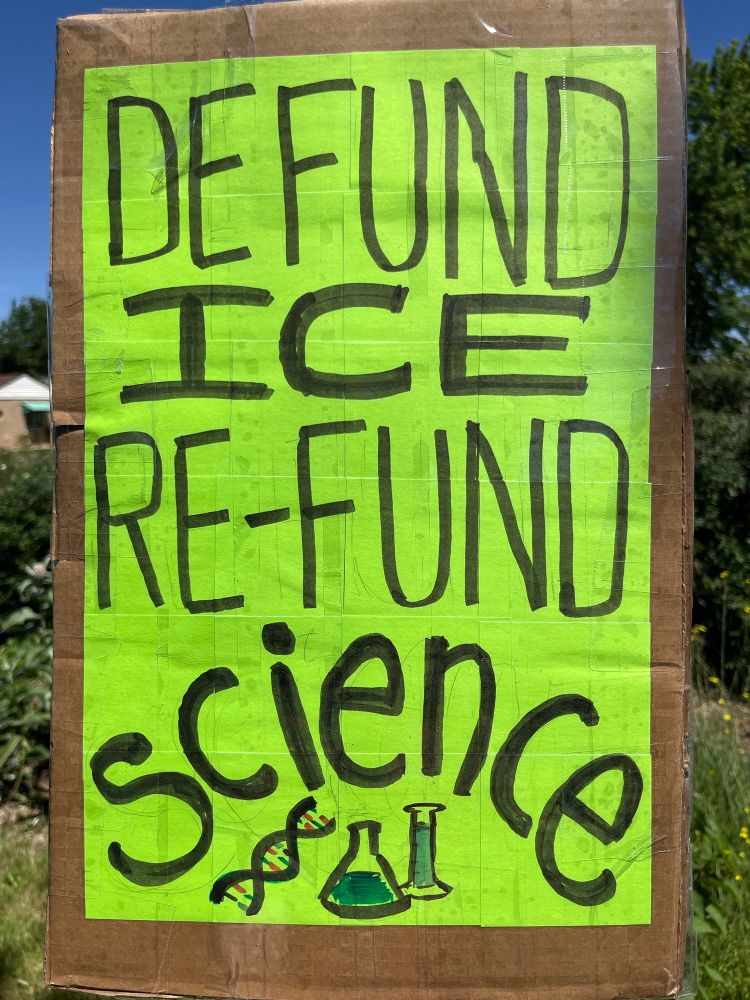 DEFUND
ICE
RE-FUND
science